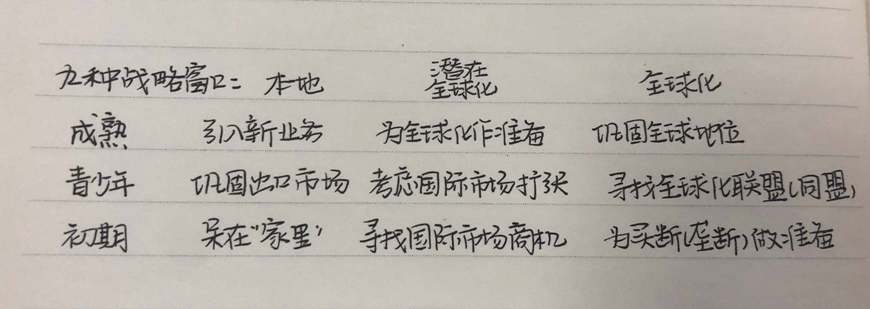 九种战略窗口： 本地 潜在全球化 全球化
成熟 引入新业务 为全球化作准备 巩固全球地位
青少年 巩固出口市场 考虑国际市场扩张 寻找全球化联盟（同盟）
初期 呆在“家里” 寻找国际市场商机 为买断（垄断）做准备